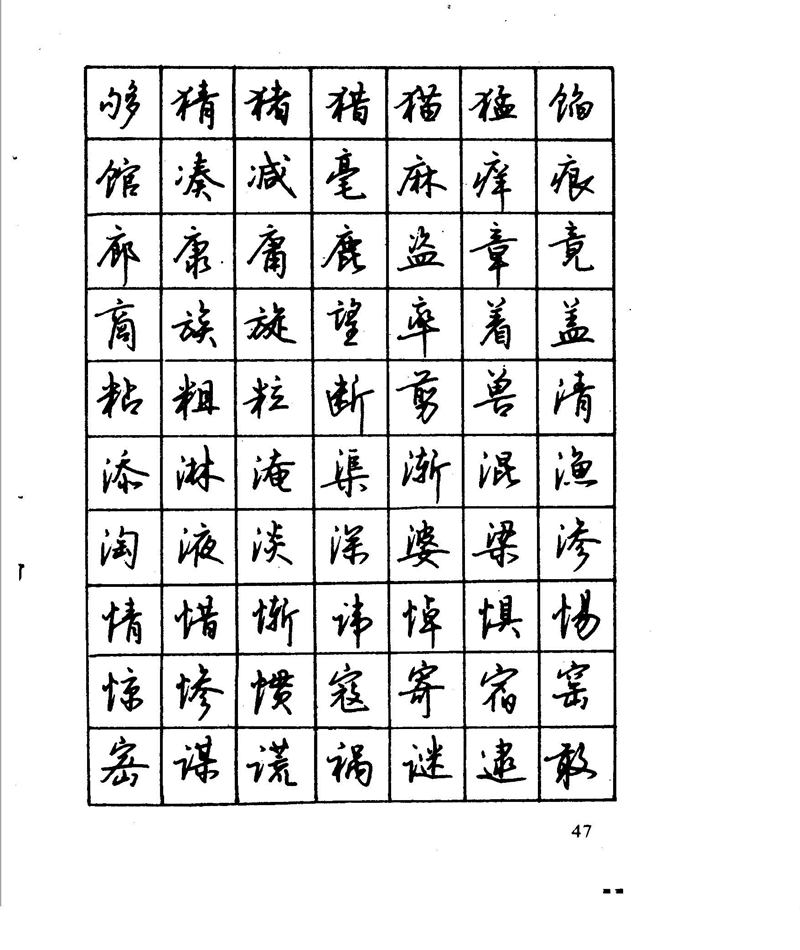 够 猜 猪 猎 猫 猛 馅
馆 凑 减 毫 麻 痒 痕
廊 康 庸 鹿 盗 章 竟
商 族 旋 望 率 着 盖
粘 粗 粒 断 剪 兽 清
添 淋 淹 渠 渐 混 渔
淘 液 淡 深 婆 梁 渗
情 惜 惭 悼 惧 惕
惊 惨 惯 寇 寄 宿 窑
密 谋 谎 祸 谜 逮 敢
47